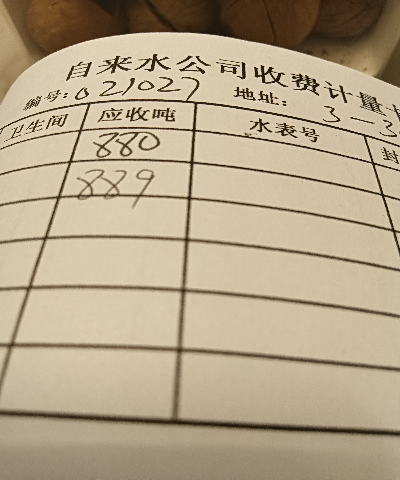 自来水公司收费计量
编号: 021027 地址: 3-3
卫生间 应收吨 水表号 封
880
889